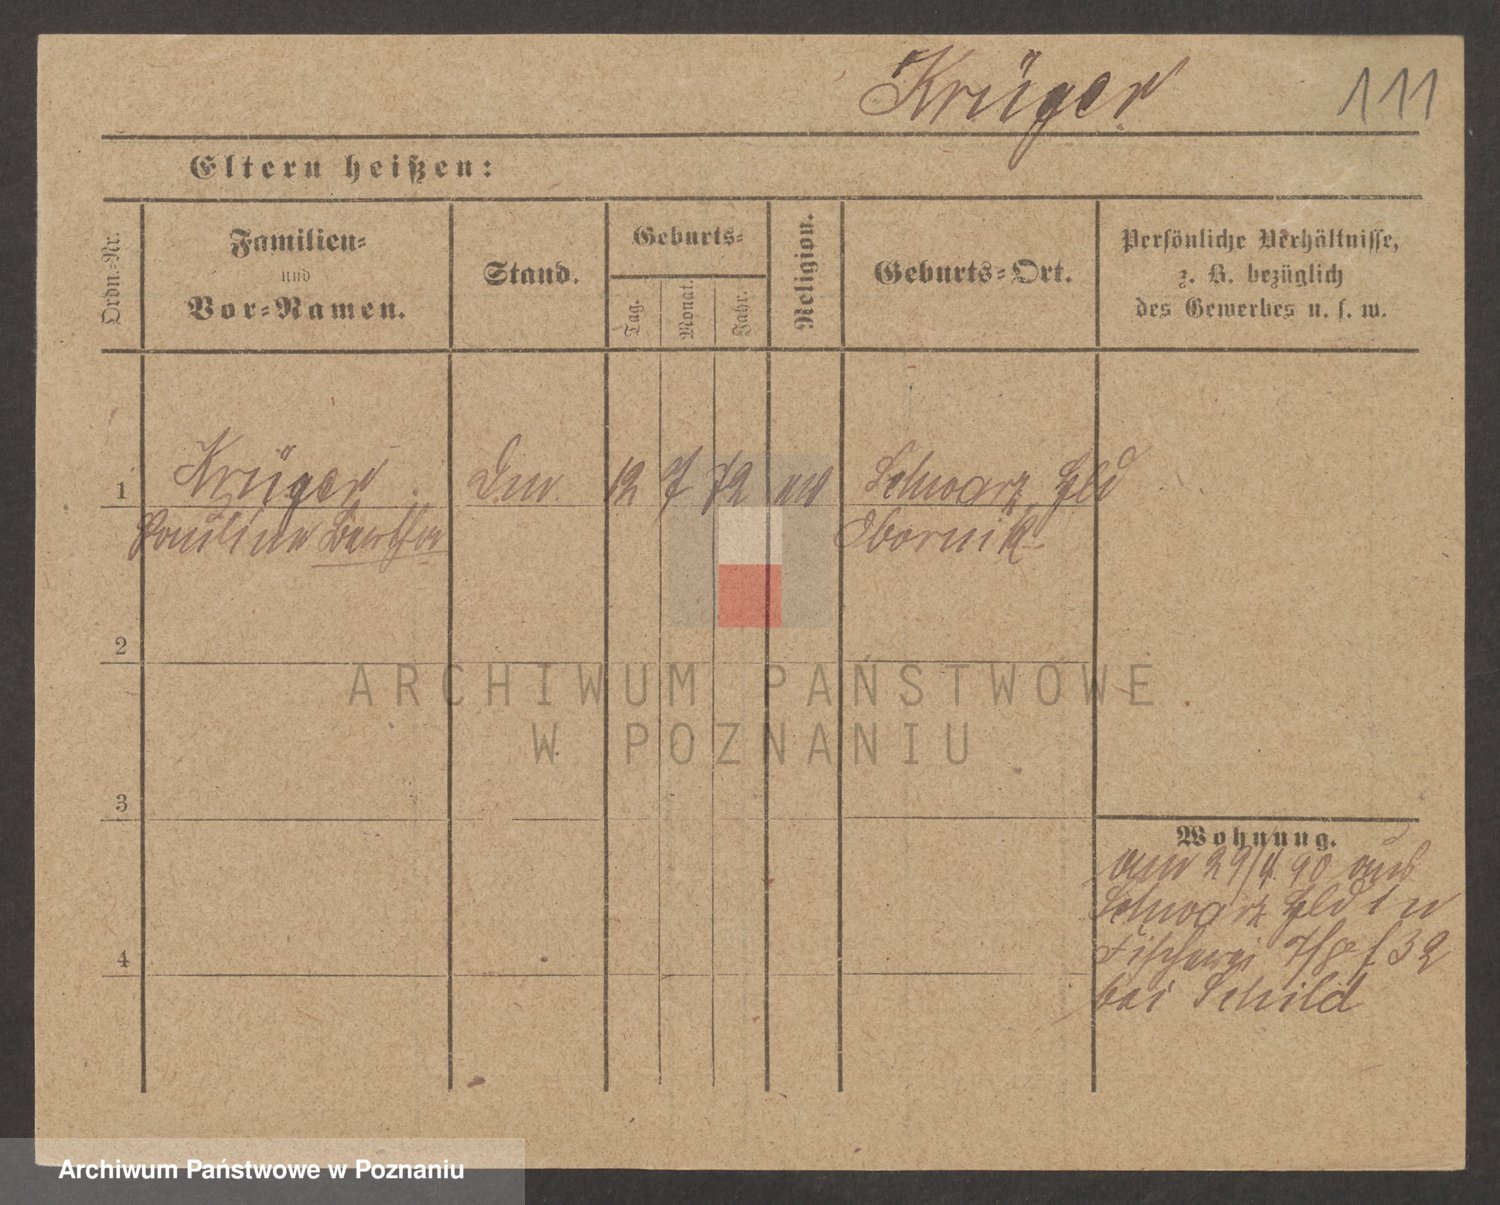 Krüger 111
Eltern heißen:
Ordn.-Nr.
Familien-
und
Vor-Namen.
Stand.
Geburts-
Tag.
Monat.
Jahr.
Religion.
Geburts-Ort.
Persönliche Verhältnisse,
z. B. bezüglich
des Gewerbes u. s. w.
1 Krüger 12 7 72 Schwarz Hld
Pauline Bertha Obornik
2
3
4
Wohnung.
am 29/4 90 aus
Schwarz Hld in
Fischerei 32
bei Schild
ARCHIWUM PAŃSTWOWE
W POZNANIU
Archiwum Państwowe w Poznaniu